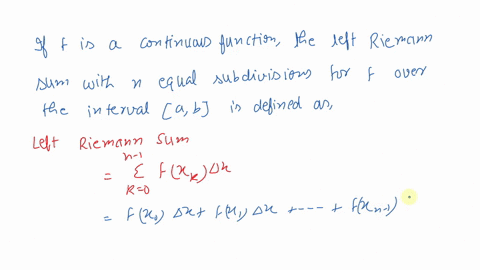 If f is a continuous function, the left Riemann
sum with n equal subdivisions for f over
the interval [a, b] is defined as,
Left Riemann Sum
n-1
= Σ f(x_k) Δx
K=0
= f(x_0) Δx + f(x_1) Δx + ---- + f(x_{n-1})